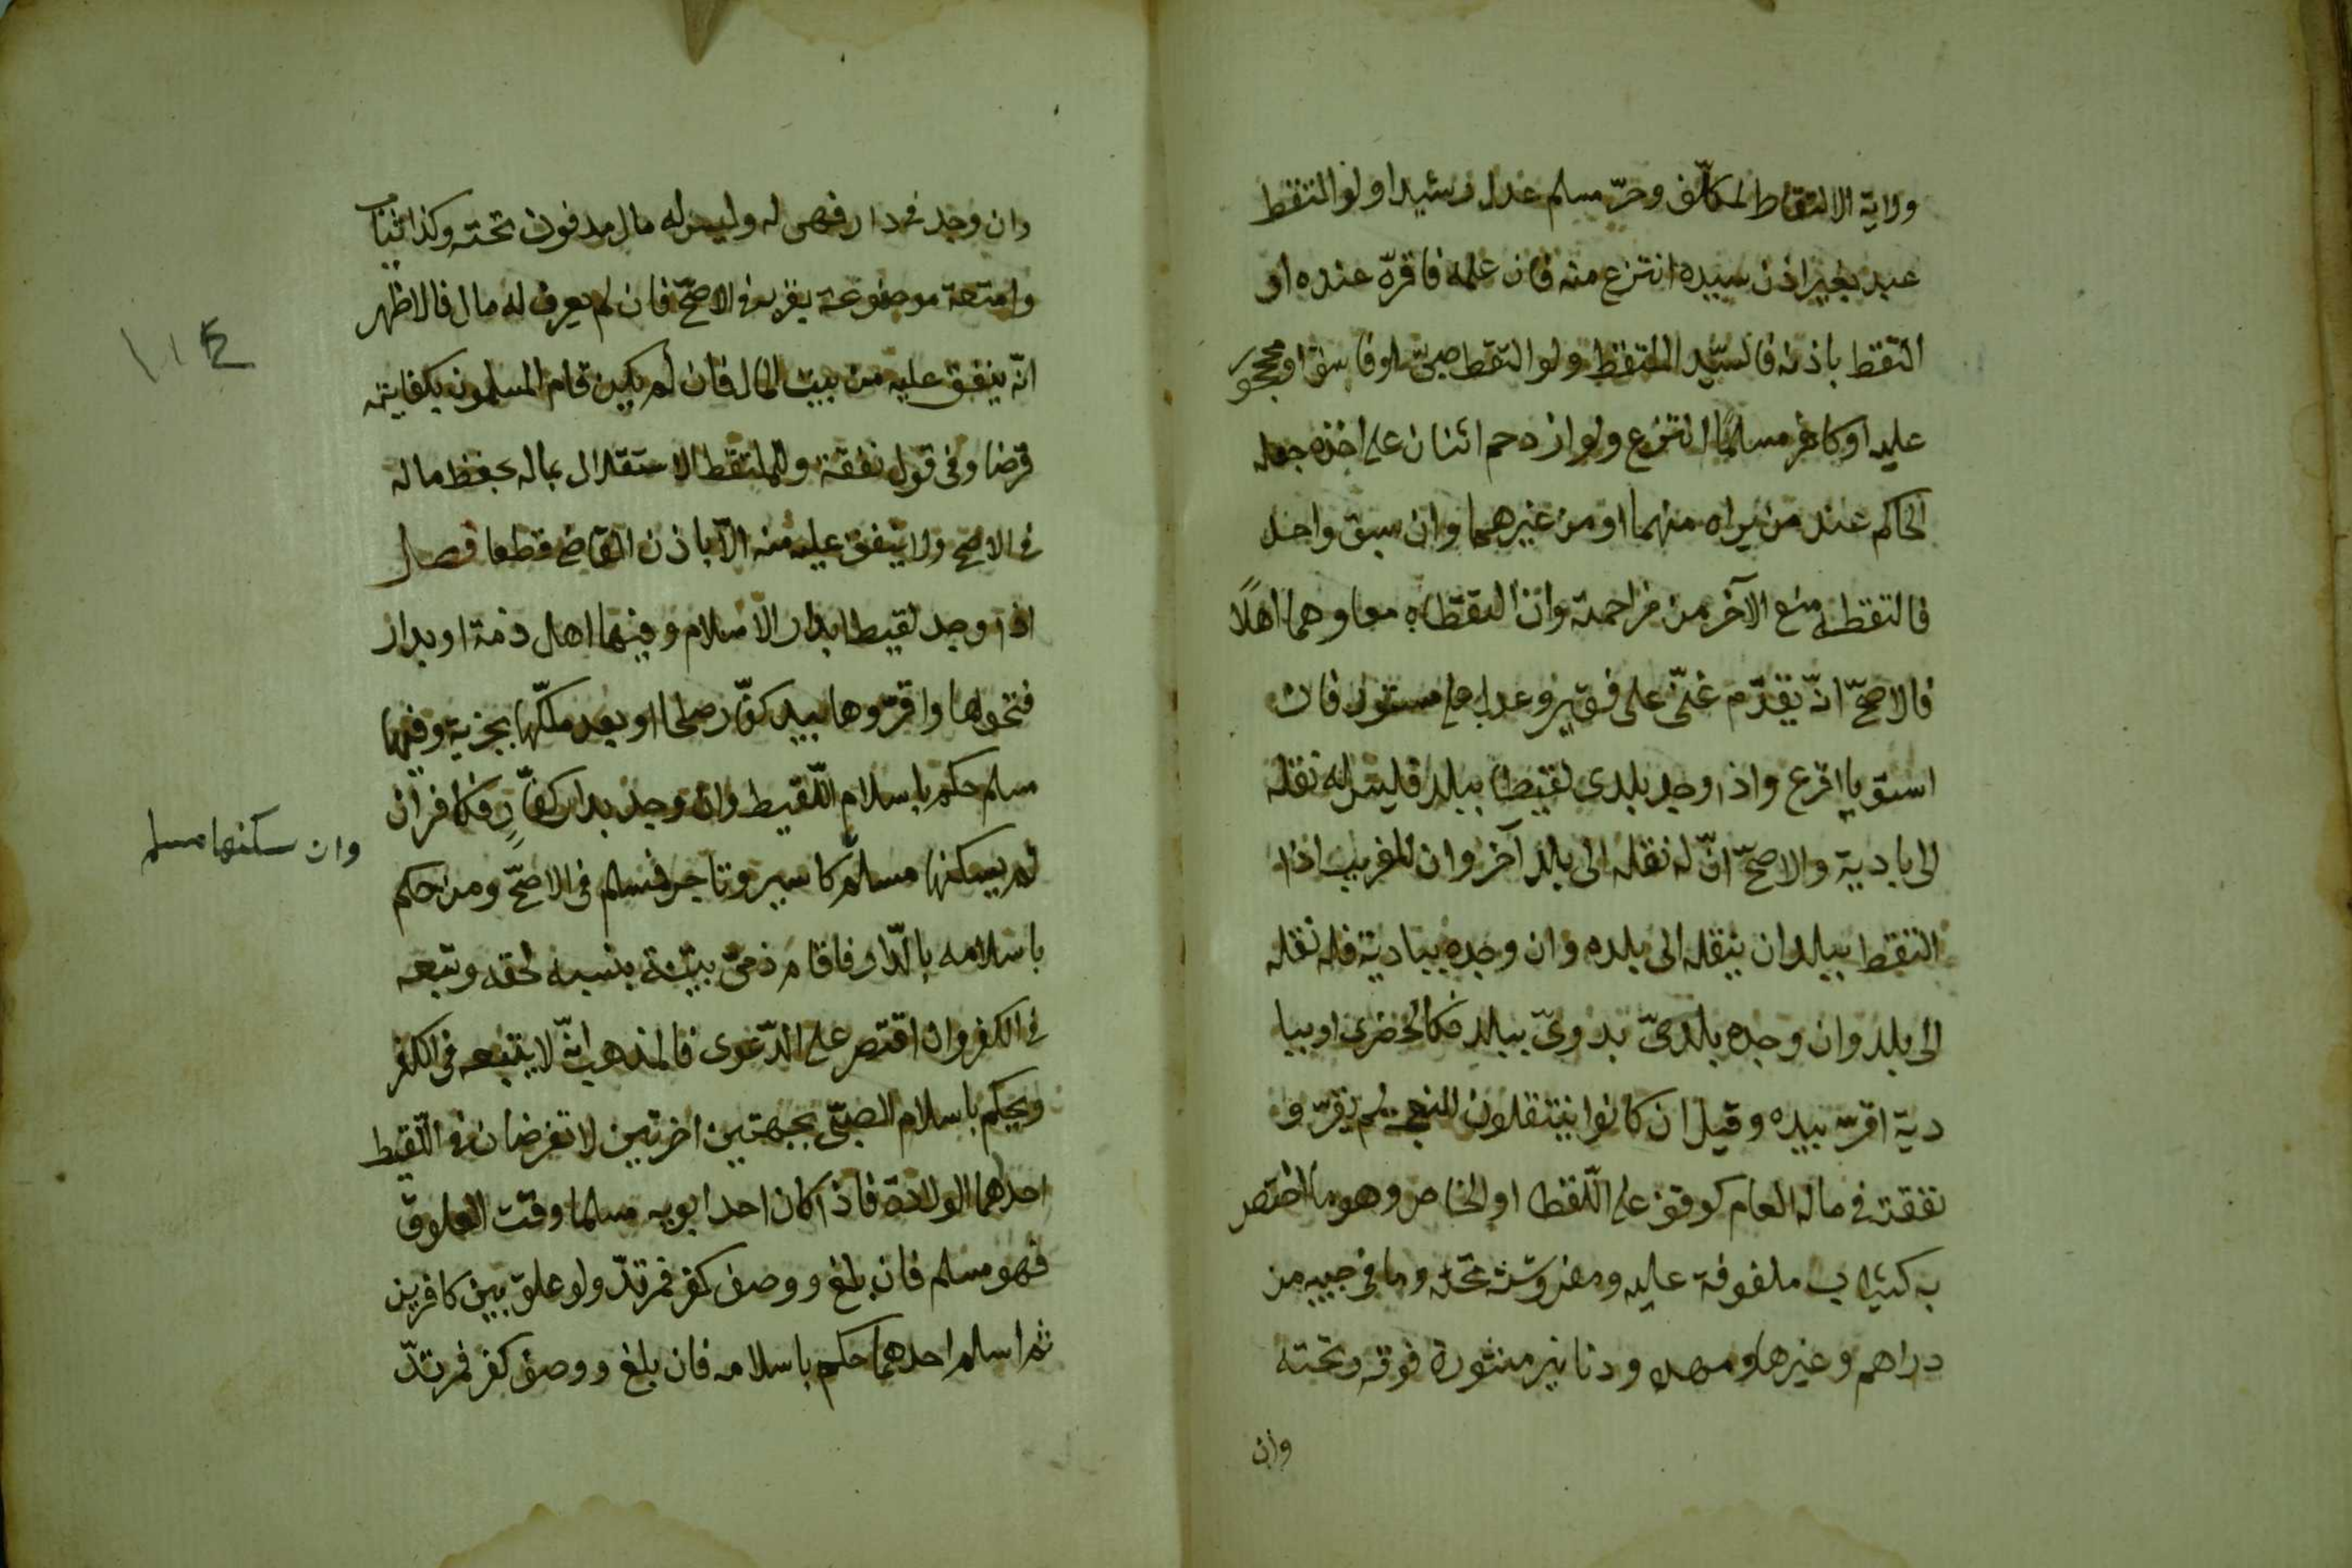 وولاية الالتقاط لمكلّف وحرّ مسلم عدل رشيد ولو التقط
عبد بغير اذن سيده انتزع منه فان علمه فاقرّه عنده او
التقط باذنه فالسّيّد الملتقط ولو التقط صبىّ او فاسق او محجور
عليه او كافر مسلمًا انتزع ولو ازدحم اثنان على اخذه جعله
الحاكم عند من يراه منهما او من غيرهما وان سبق واحد
فالتقطه منع الآخر من مزاحمته وان التقطاه معا وهما اهلًا
فالاصحّ انّه يقدّم غنىّ على فقير وعدل على مستور فان
استويا اقرع واذا وجد بلدى لقيطا ببلد فليس له نقله
الى بادية والاصحّ انّ له نقله الى بلد آخر وان للغريب اذا
التقط ببلد ان ينقله الى بلده وان وجده ببادية فله نقله
الى بلد وان وجده بلدىّ بدوىّ ببلد فكالحضرى او ببا
دية اقرّ بيده وقيل ان كانوا ينتقلون للنجعة لم يقرّ و
نفقته فى ماله العام كوقف على اللّقطا او الخاص وهو ما اختص
به كثياب ملفوفة عليه ومفروشة تحته وما فى جيبه من
دراهم وغيرها ومهده ودنانير منثورة فوقه وتحته
وان
وان وجد فى دار فهى له وليس له مال مدفون تحته وكذا ثياب
وامتعة موضوعة بقربه فى الاصحّ فان لم يعرف له مال فالاظهر
انّه ينفق عليه من بيت المال فان لم يكن قام المسلمون بكفايته
قرضا وفى قول نفقة وللملتقط الاستقلال بماله بحفظ ماله
فى الاصح ولا ينفق عليه منه الّا باذن القاضى قطعا فصل
اذا وجد لقيط بدار الاسلام وفيها اهل ذمة او بدار
فتحوها واقرّوها بيد كفّار صلحا او بعد ملكها بجزية وفيها
مسلم حكم باسلام اللّقيط وان وجد بدار كفّارٍ فكافر ان
لم يسكنها مسلم كاسير وتاجر فمسلم فى الاصحّ ومن حكم
وان سكنها مسلم
باسلامه بالدّار فاقام ذمىّ بيّنة بنسبه لحقه وتبعه
فى الكفر وان اقتصر على الدّعوى فالمذهب انّه لا يتبعه فى الكفر
ويحكم باسلام الصبىّ بجهتين اخريين لا تفرضان فى اللّقيط
احدهما الولادة فاذا كان احد ابويه مسلما وقت العلوق
فهو مسلم فان بلغ ووصف كفر فمرتدّ ولو علق بين كافرين
ثم اسلم احدهما حكم باسلامه فان بلغ ووصف كفر فمرتدّ